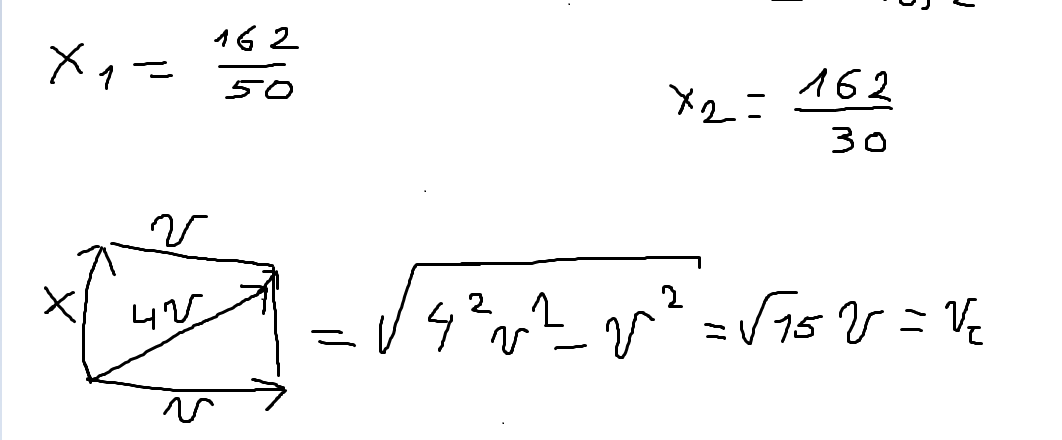 x₁ = 162/50
x₂ = 162/30
v
x
4v
v
= √(4²v² - v²) = √15 v = v_c